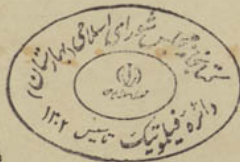 کتابخانه مجلس شورای اسلامی (بهارستان)
دائره فیلوتیک تاسیس ۱۳۰۲